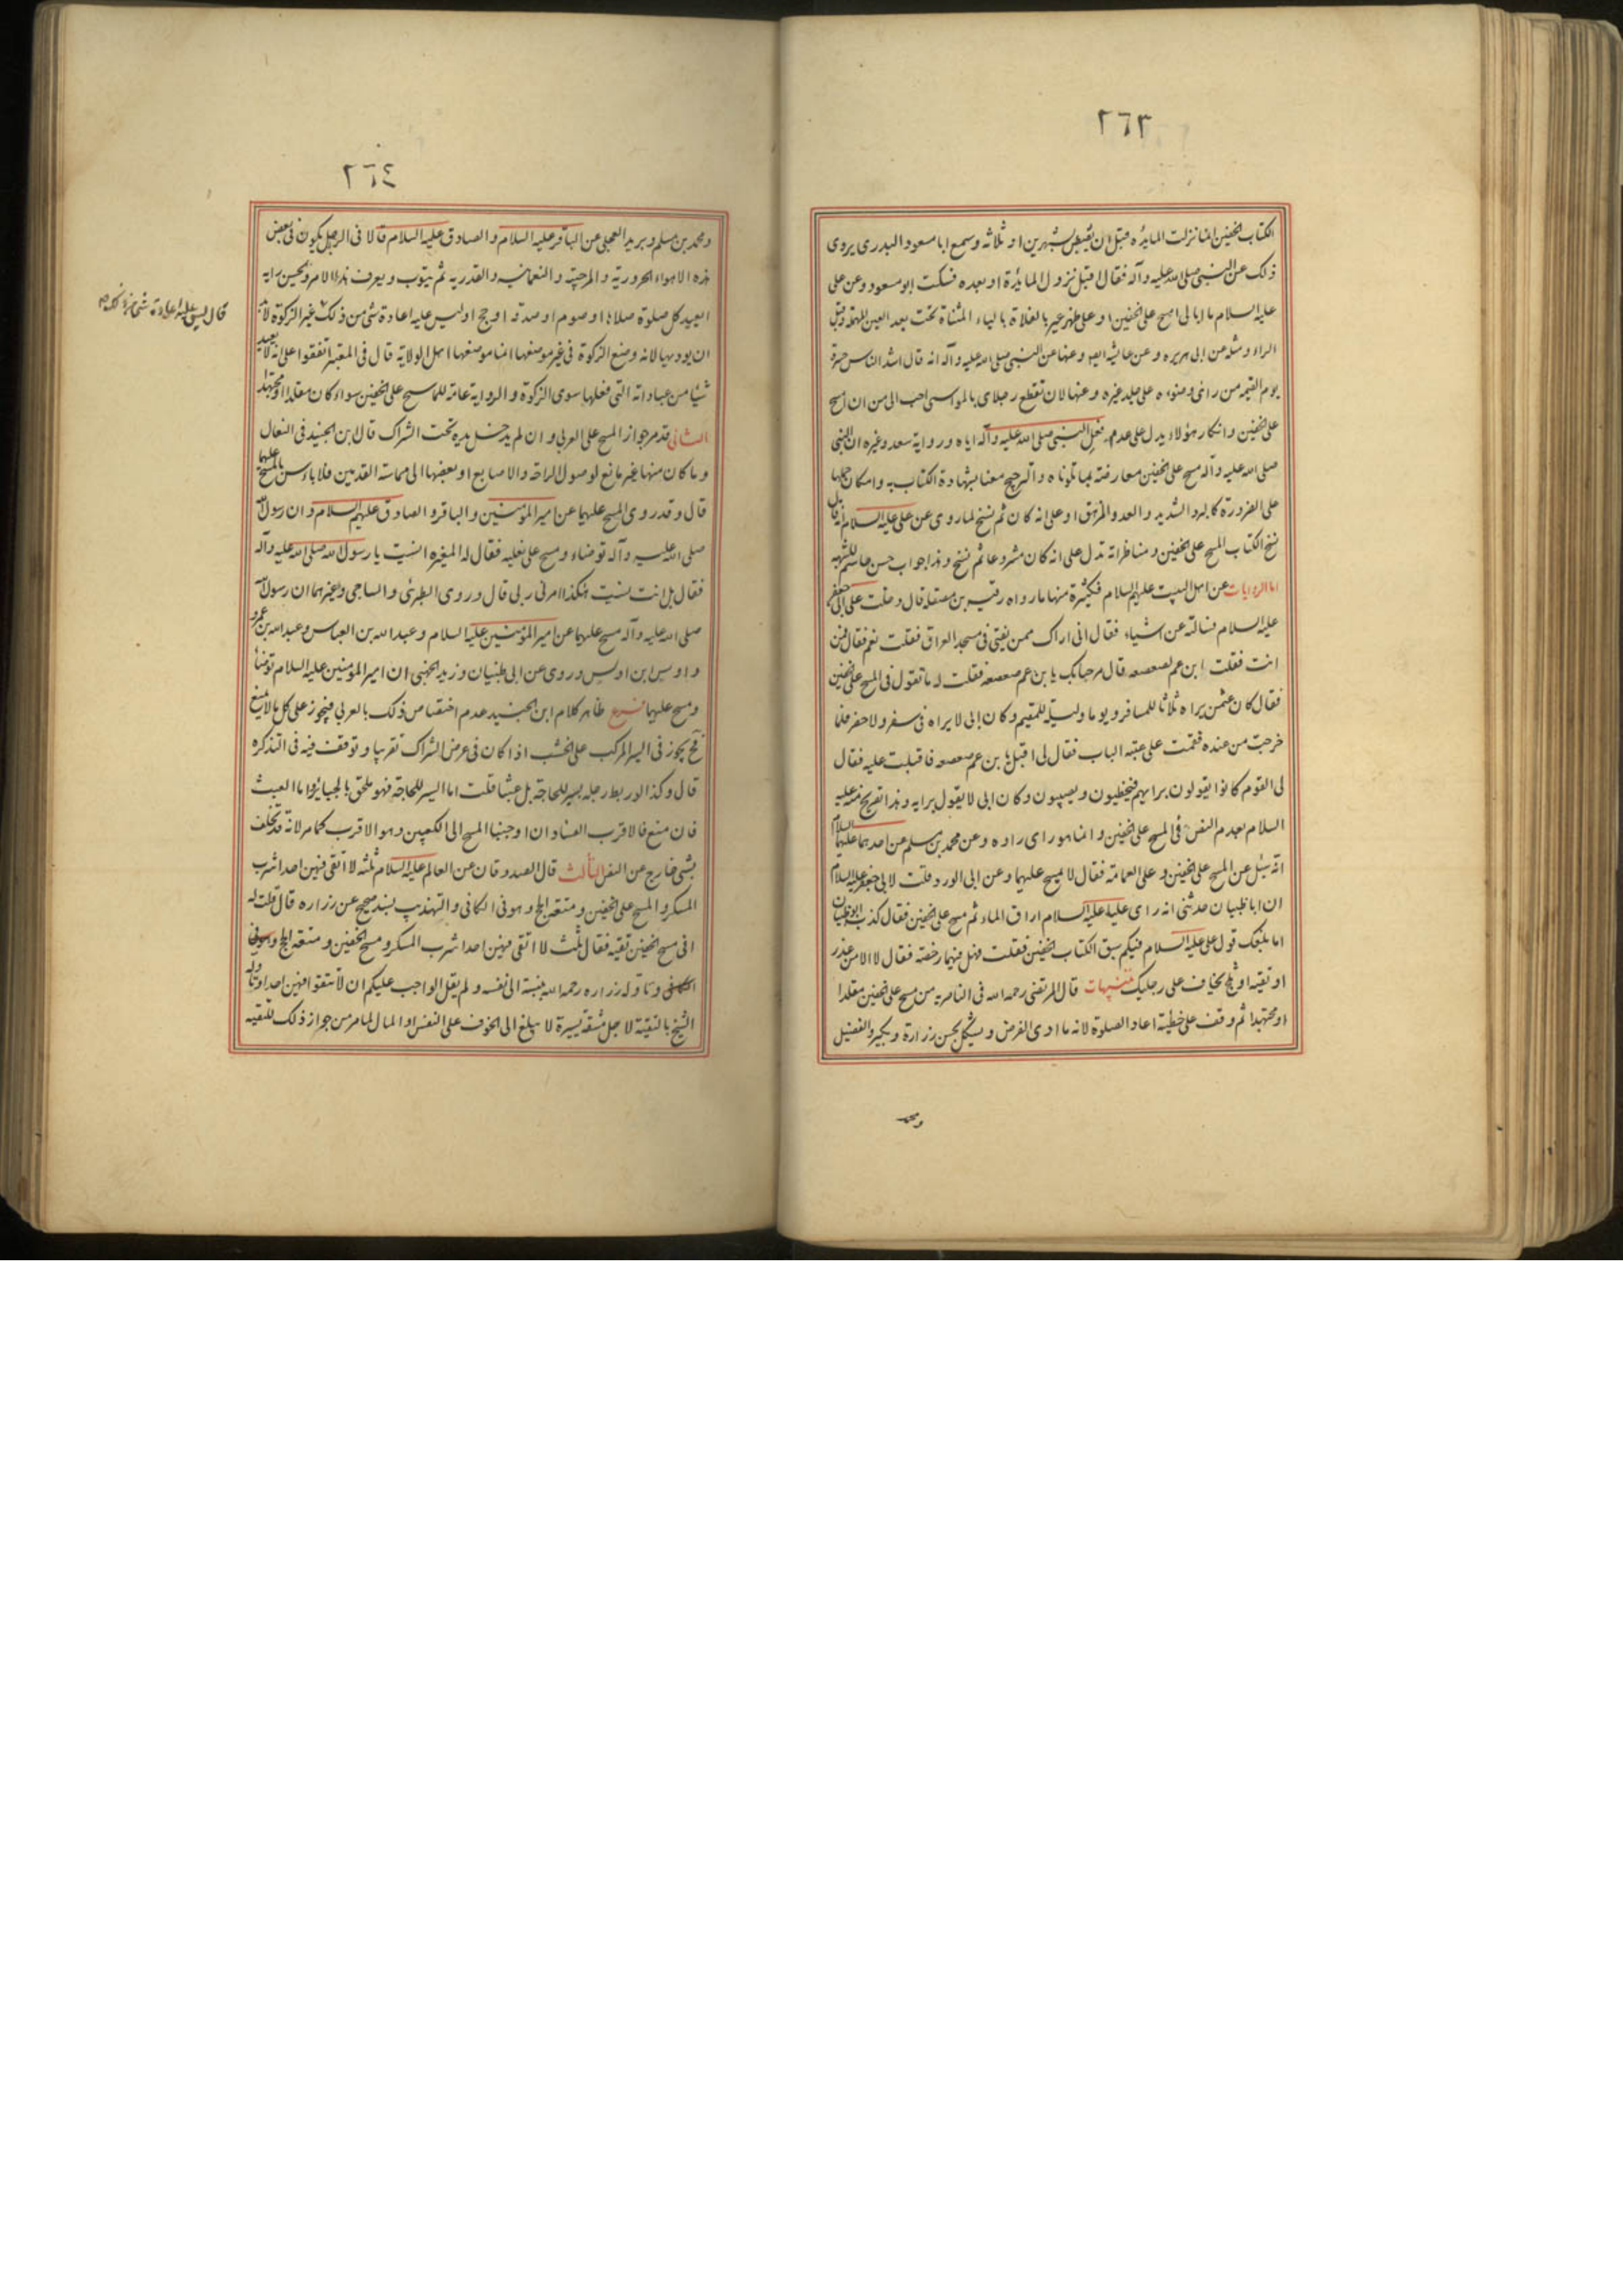 ٢٦٣
الكتاب الخفين انما نزلت المايده قبل ان يقبض بشهرين او ثلاثه وسمع ابا مسعود البدرى يروى
ذلك عن النبى صلى الله عليه وآله فقال اقبل نزول المائدة او بعده فسكت ابو مسعود وعن على
عليه السلام ما ابالى امسح على الخفين او على ظهر عير بالفلاة بالياء المثناة تحت بعد العين المهملة وقبل
الراء ومثله عن ابى هريره وعن عايشه ايضا وعنها عن النبى صلى الله عليه وآله انه قال اشد الناس حسرة
يوم القيمه من راى وضوءه على جلد غيره وعنها لان تقطع رجلاى بالمواسى احب الى من ان امسح
على الخفين وانكار هؤلاء يدل على عدم فعل النبى صلى الله عليه وآله اياه ورواية سعد وغيره ان النبى
صلى الله عليه وآله مسح على الخفين معارضة بما تلوناه والترجيح معنا بشهادة الكتاب به وامكان حملها
على الضرورة كالبرد الشديد والعدو المرهق او على انه كان ثم نسخ لما روى عن على عليه السلام انه قال
نسخ الكتاب المسح على الخفين ومناظراته تدل على انه كان مشروعا ثم نسخ وهذا جواب حسن حاسم للشبهه
اما الروايات عن اهل البيت عليهم السلام فكثيرة منها ما رواه رقبه بن مصقله قال دخلت على ابى جعفر
عليه السلام فسالته عن اشياء فقال انى اراك ممن يفتى فى مسجد العراق فقلت نعم فقال من
انت فقلت ابن عم لصعصعه فقال مرحبا بك يا بن عم صعصعه فقلت له ما تقول فى المسح على الخفين
فقال كان عمر يراه ثلاثا للمسافر ويوما وليلة للمقيم وكان ابى لا يراه فى سفر ولا حضر فلما
خرجت من عنده فقمت على عتبه الباب فقال لى اقبل يا بن عم صعصعه فاقبلت عليه فقال
لى القوم كانوا يقولون برايهم فيخطئون ويصيبون وكان ابى لا يقول برايه وهذا تصريح منه عليه السلام
السلام بعدم النص فى المسح على الخفين وانما هو راى راوه وعن محمد بن مسلم عن احدهما عليهما
انه سئل عن المسح على الخفين وعلى العمامة فقال لا يمسح عليهما وعن ابى الورد قلت لابى جعفر عليه السلام
ان ابا ظبيان حدثنى انه راى عليا عليه السلام اراق الماء ثم مسح على الخفين فقال كذب ابو ظبيان
اما بلغك قول على عليه السلام فيكم سبق الكتاب الخفين فقلت فهل فيهما رخصة فقال لا الا من عذر
او تقيه او ثلج تخاف على رجليك تنبيهات قال المرتضى رحمه الله فى الناصريه من مسح على الخفين مقلدا
او مجتهدا ثم وقف على خطيئة اعاد الصلوة لانه ما ادى الفرض ويشكل بحسن زرارة وبكير والفضيل
ومحمد
٢٦٤
ومحمد بن مسلم وبريد العجلى عن الباقر عليه السلام والصادق عليه السلام قالا فى الرجل يكون فى بعض
هذه الاهواء الحرورية والمرجئة والعثمانية والقدريه ثم يتوب ويعرف هذا الامر ويحسن رايه
ايعيد كل صلوة صلاها او صوم او صدقه او حج او ليس عليه اعادة شئ من ذلك غير الزكوة لابد
ان يوديها لانه وضع الزكوة فى غير موضعها انما موضعها اهل الولاية قال فى المعتبر اتفقوا على انه لا يعيد
شيئا من عباداته التى فعلها سوى الزكوة والرواية عامه للماسح على الخفين سواء كان مقلدا او مجتهدا
الثانى قد مر جواز المسح على العربى وان لم يدخل يده تحت الشراك قال ابن الجنيد فى النعال
وما كان منها غير مانع لوصول الراحة والاصابع او بعضها الى مماسة القدمين فلا باس بالمسح عليهما
قال وقد روى المسح عليهما عن امير المؤمنين والباقر والصادق عليهم السلام وان رسول الله
صلى الله عليه وآله توضاء ومسح على نعليه فقال له المغيره انسيت يا رسول الله صلى الله عليه وآله
فقال بل انت نسيت هكذا امرنى ربى قال وروى الطبرى والساجى وغيرهما ان رسول الله
صلى الله عليه وآله مسح عليهما عن امير المؤمنين عليه السلام وعبد الله بن العباس وعبد الله بن عمرو
واوس ابن اوس وروى عن ابى ظبيان وزيد الجهنى ان امير المؤمنين عليه السلام توضأ
ومسح عليهما فرع ظاهر كلام ابن الجنيد عدم اختصاص ذلك بالعربى فيجوز على كل ما لا يمنع
فح يجوز فى السير المركب على الخشب اذا كان فى عرض الشراك تقريبا وتوقف فيه فى التذكره
قال وكذا لو ربط رجله بسير للحاجة بل عبثا قلت اما السير للحاجة فهو ملحق بالجباير واما العبث
فان منع فالاقرب الفساد ان اوجبنا المسح الى الكعبين وهو الاقرب كما مر لانه قد تخلف
بشئ خارج عن النص الثالث قال الصدوقان عن العالم عليه السلام ثلثه لا اتقى فيهن احدا شرب
المسكر والمسح على الخفين ومتعه الحج وهو فى الكافى والتهذيب بسند صحيح عن زراره قال قلت له
افى مسح الخفين تقيه فقال ثلث لا اتقى فيهن احدا شرب المسكر ومسح الخفين ومتعه الحج وهو فى
الكافى وتاوله زراره رحمه الله بنسبته الى نفسه ولم يقل الواجب عليكم ان لا تتقوا فيهن احدا وتاوله
الشيخ بالتقية لاجل مشقة يسيرة لا يبلغ الى الخوف على النفس او المال لما مر من جواز ذلك للتقيه